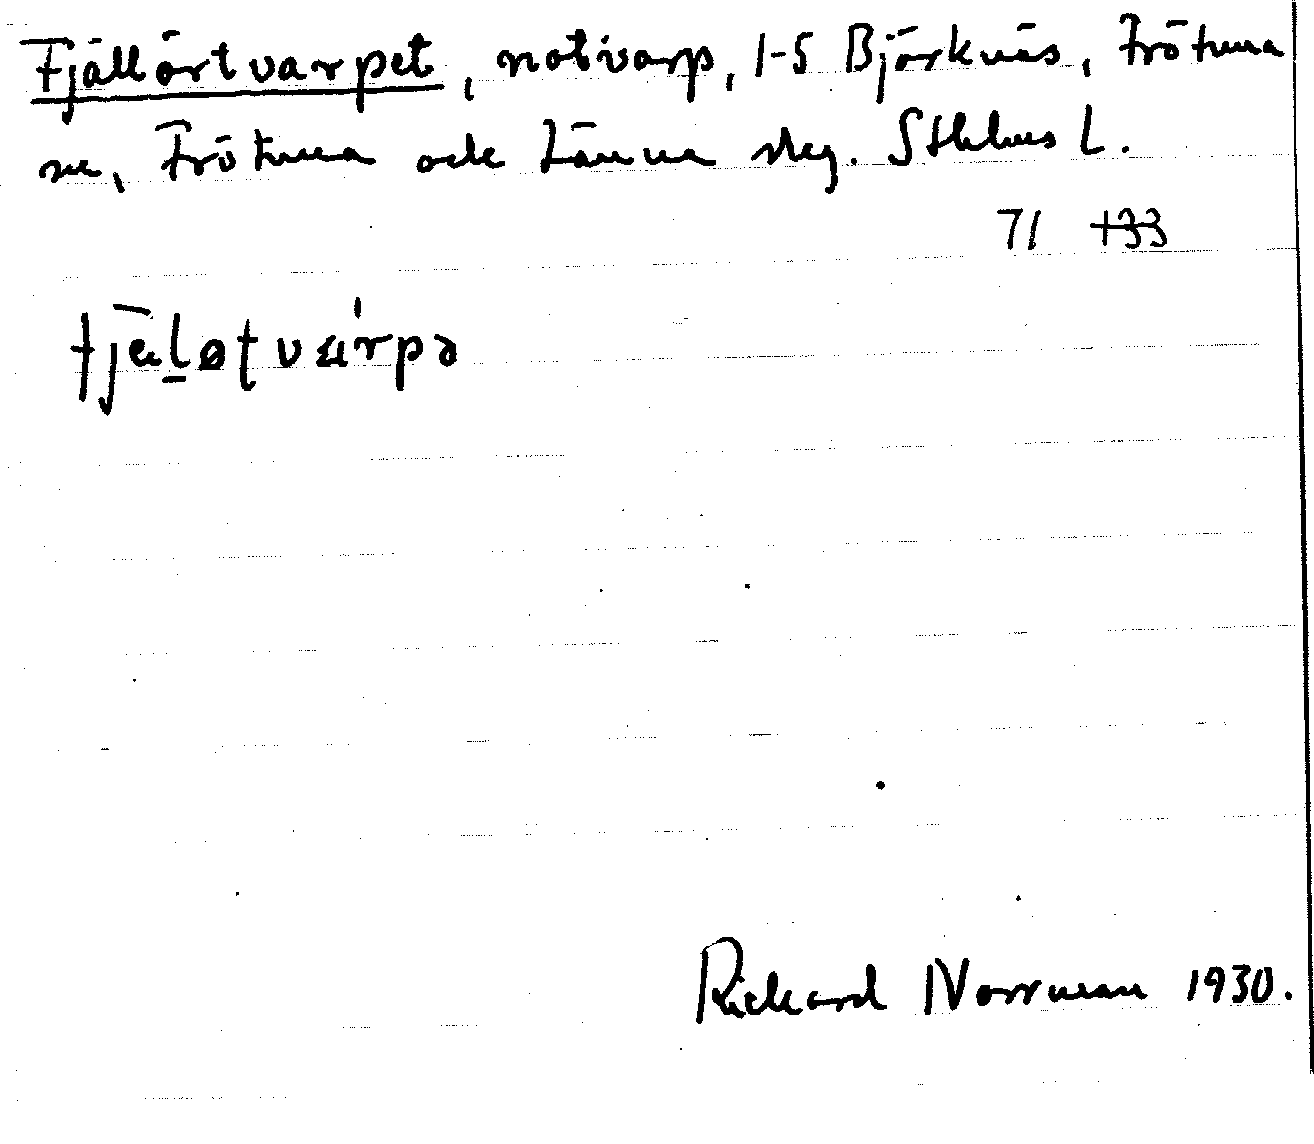 Fjällörtvarpet, notvarp, 1-5 Björknäs, Frötuna
sn, Frötuna och Länna skg. Sthlms L.
71 133
fjäløtvárpə
Rickard Norrman 1930.